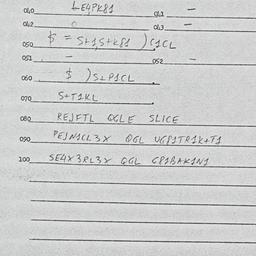 040 LE4PK81 041 –
042 043 –
050 $ = S+1,S+K81 )C1CL
051 – 052 –
060 $ )S1P1CL
070 S+T1KL
080 REJFTL QGLE SLICE
090 PEJN1CL3X QGL UGP1TR1K+T1
100 SE4X3RL3X QGL CP1BAK1N1